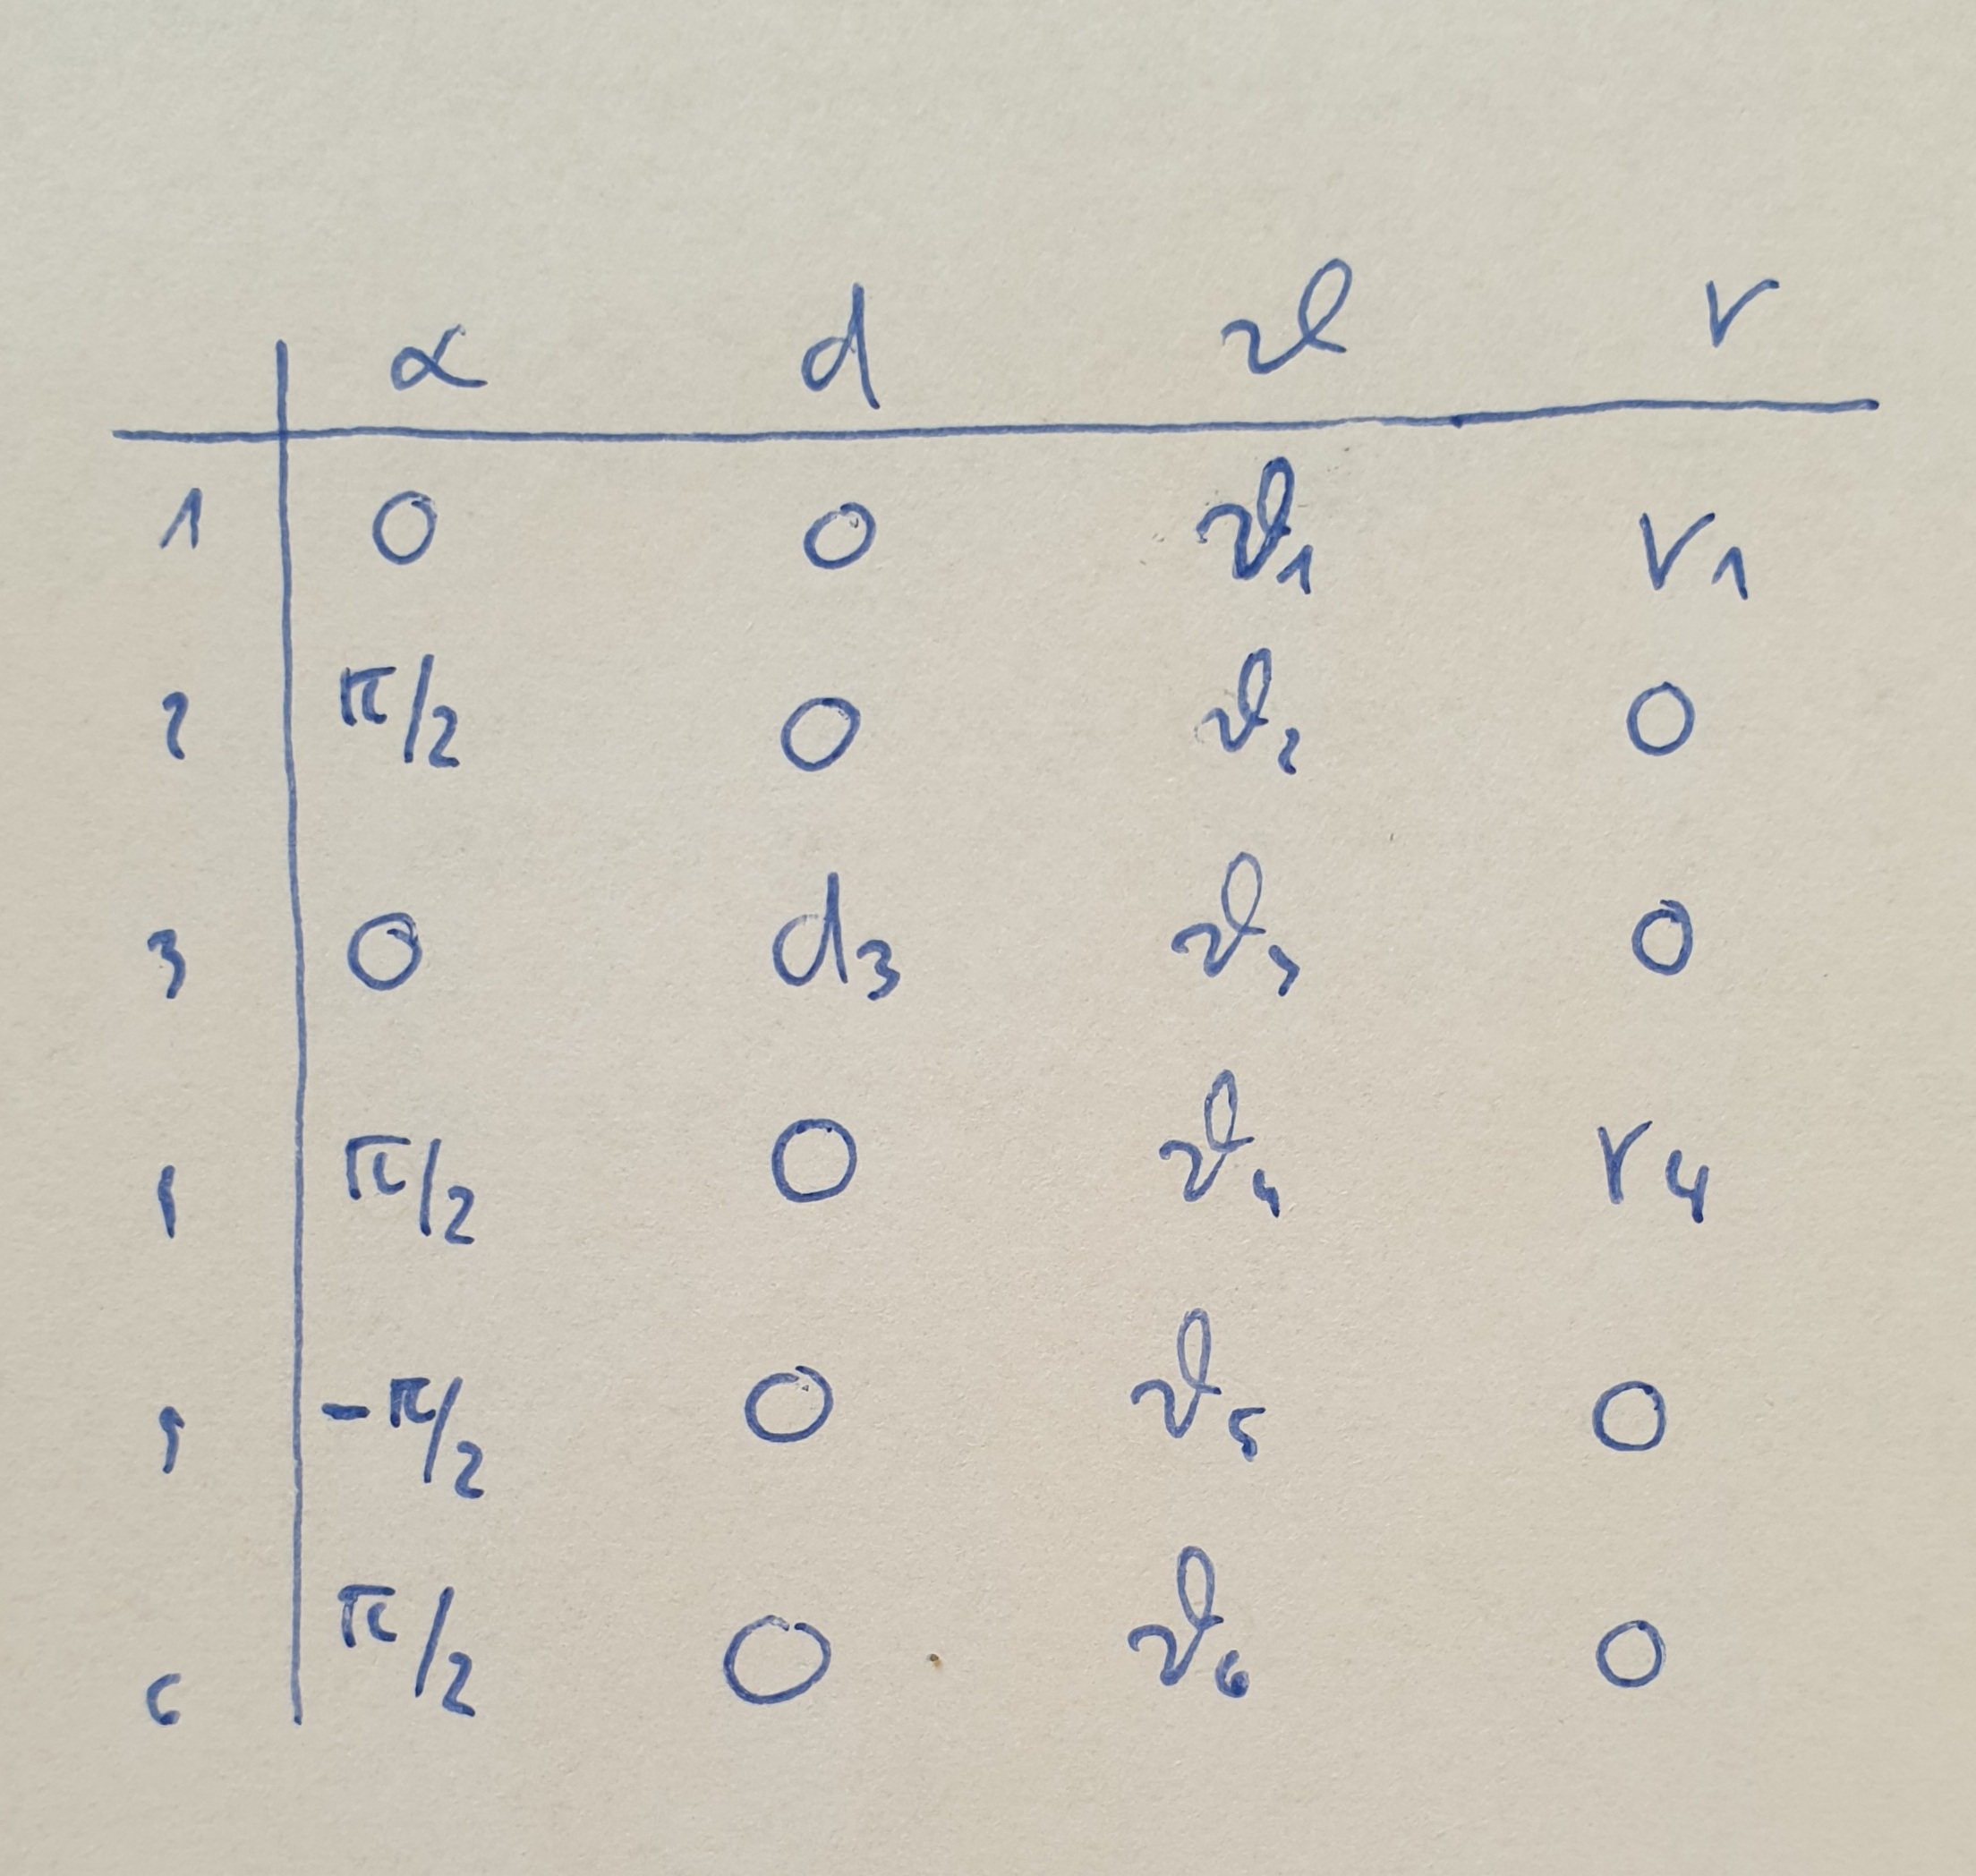 α d ϑ r
1 0 0 ϑ1 r1
2 π/2 0 ϑ2 0
3 0 d3 ϑ3 0
π/2 0 ϑ4 r4
5 -π/2 0 ϑ5 0
6 π/2 0 ϑ6 0